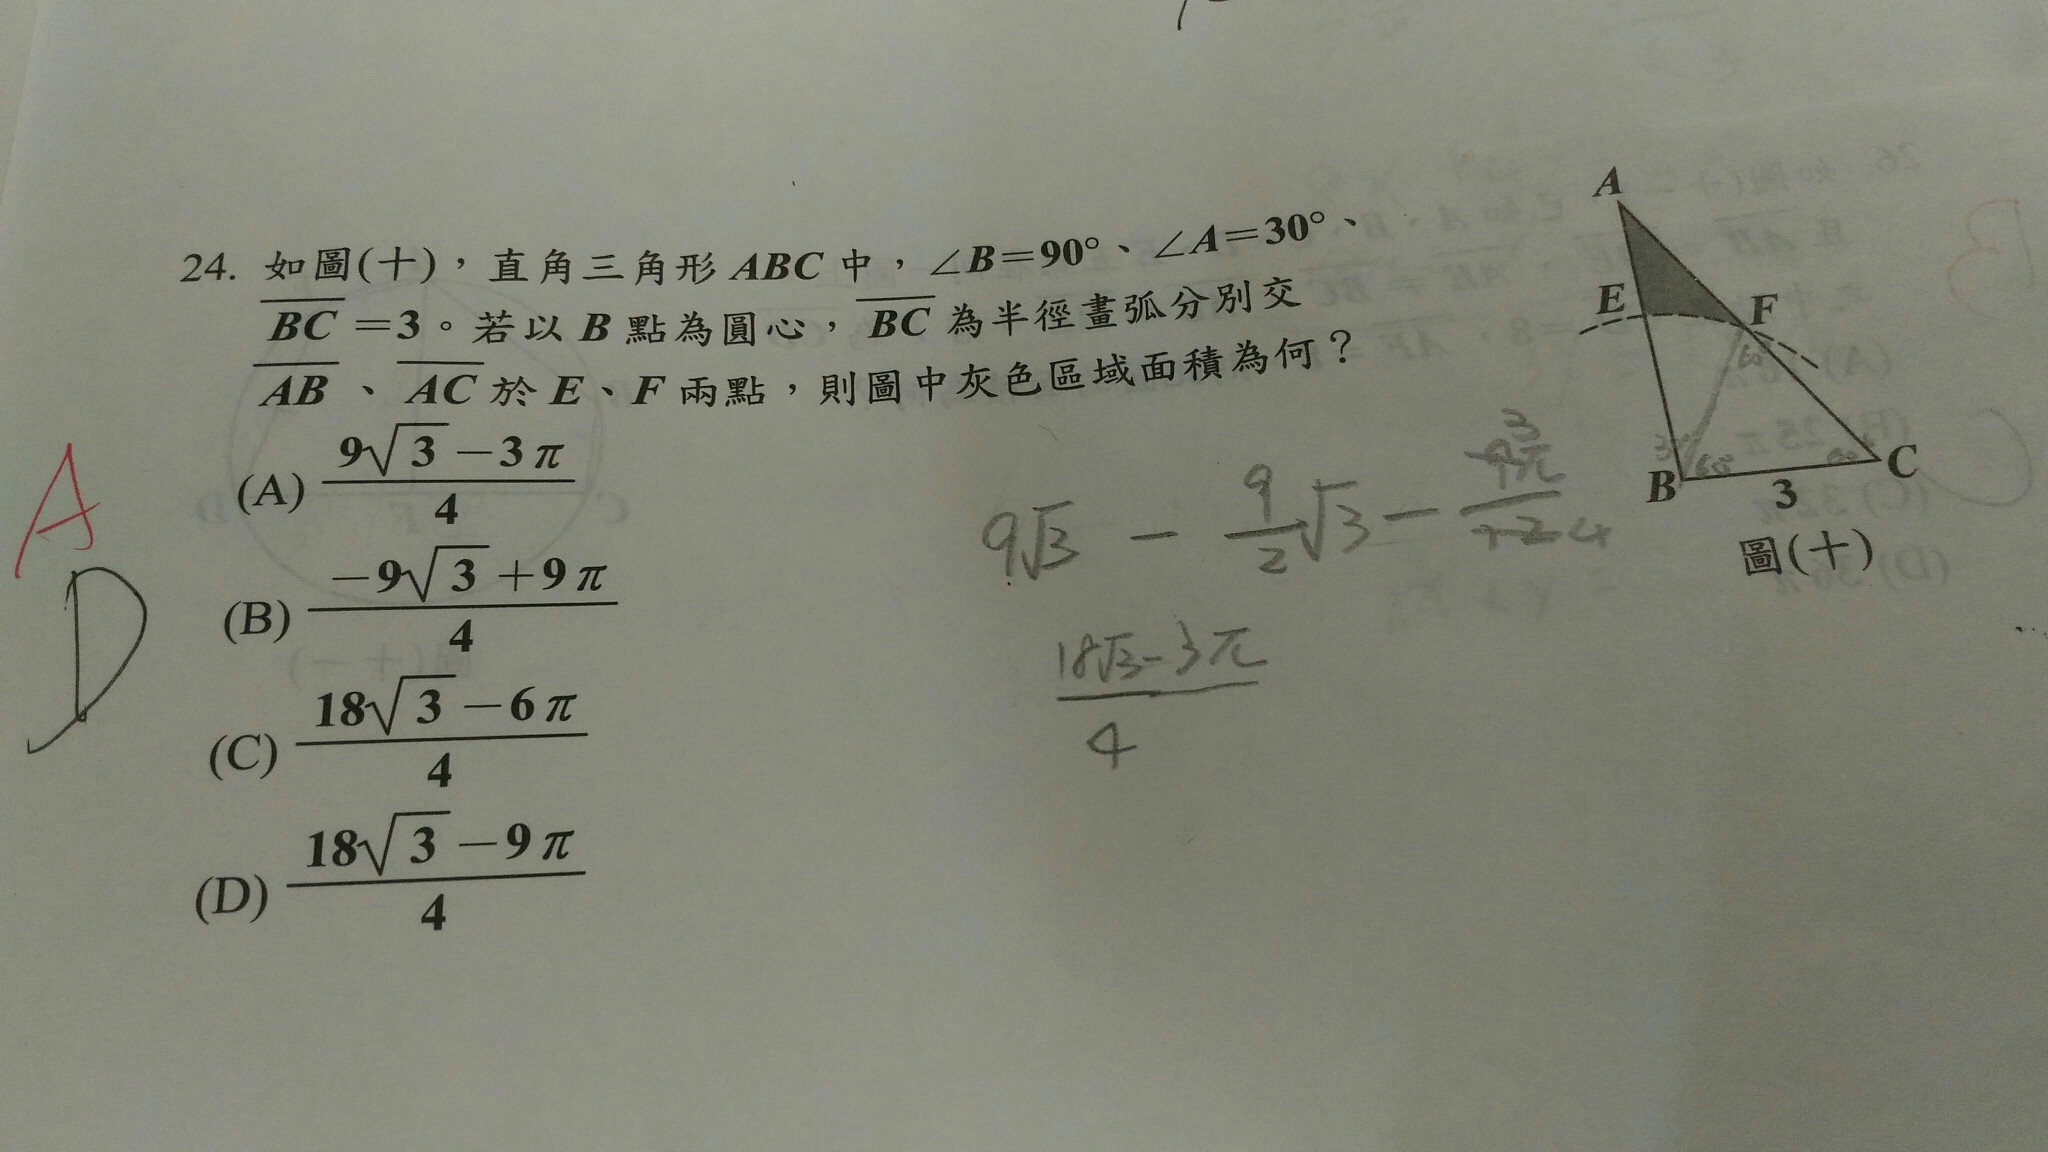 24. 如圖(十)，直角三角形 ABC 中，∠B=90°、∠A=30°、
BC=3。若以 B 點為圓心，BC 為半徑畫弧分別交
AB、AC 於 E、F 兩點，則圖中灰色區域面積為何？
(A) (9√3－3π)/4
(B) (－9√3＋9π)/4
(C) (18√3－6π)/4
(D) (18√3－9π)/4
A
D
A
E
F
60°
60°
B
3
C
圖(十)
9√3 － 9/2 √3 － 3π/4
(18√3－3π)/4